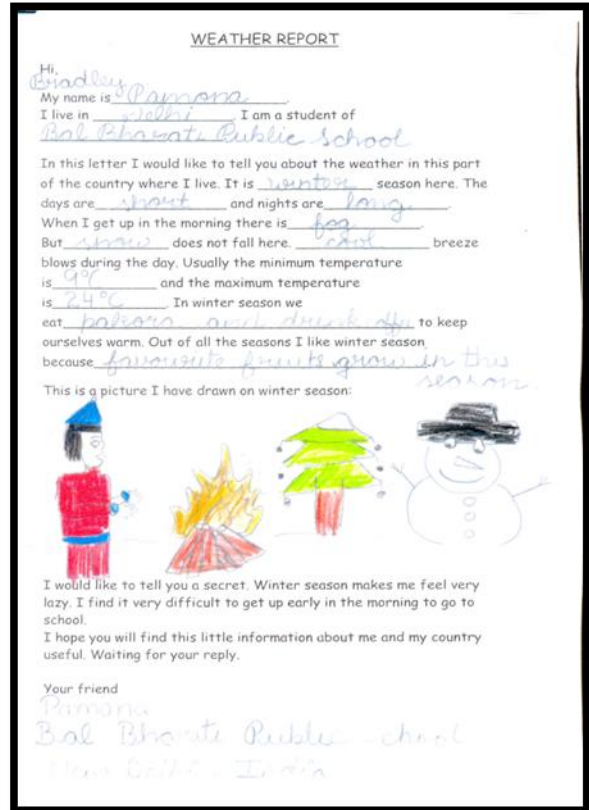 WEATHER REPORT
Hi,
Bradley
My name is Pamona.
I live in Delhi. I am a student of
Bal Bharati Public School
In this letter I would like to tell you about the weather in this part
of the country where I live. It is winter season here. The
days are short and nights are long.
When I get up in the morning there is fog.
But snow does not fall here. cool breeze
blows during the day. Usually the minimum temperature
is 9°C and the maximum temperature
is 24°C. In winter season we
eat pakora and drink to keep
ourselves warm. Out of all the seasons I like winter season
because favourite fruits grow in this
season.
This is a picture I have drawn on winter season:
I would like to tell you a secret. Winter season makes me feel very
lazy. I find it very difficult to get up early in the morning to go to
school.
I hope you will find this little information about me and my country
useful. Waiting for your reply.
Your friend
Pamona
Bal Bharati Public School
New Delhi, India